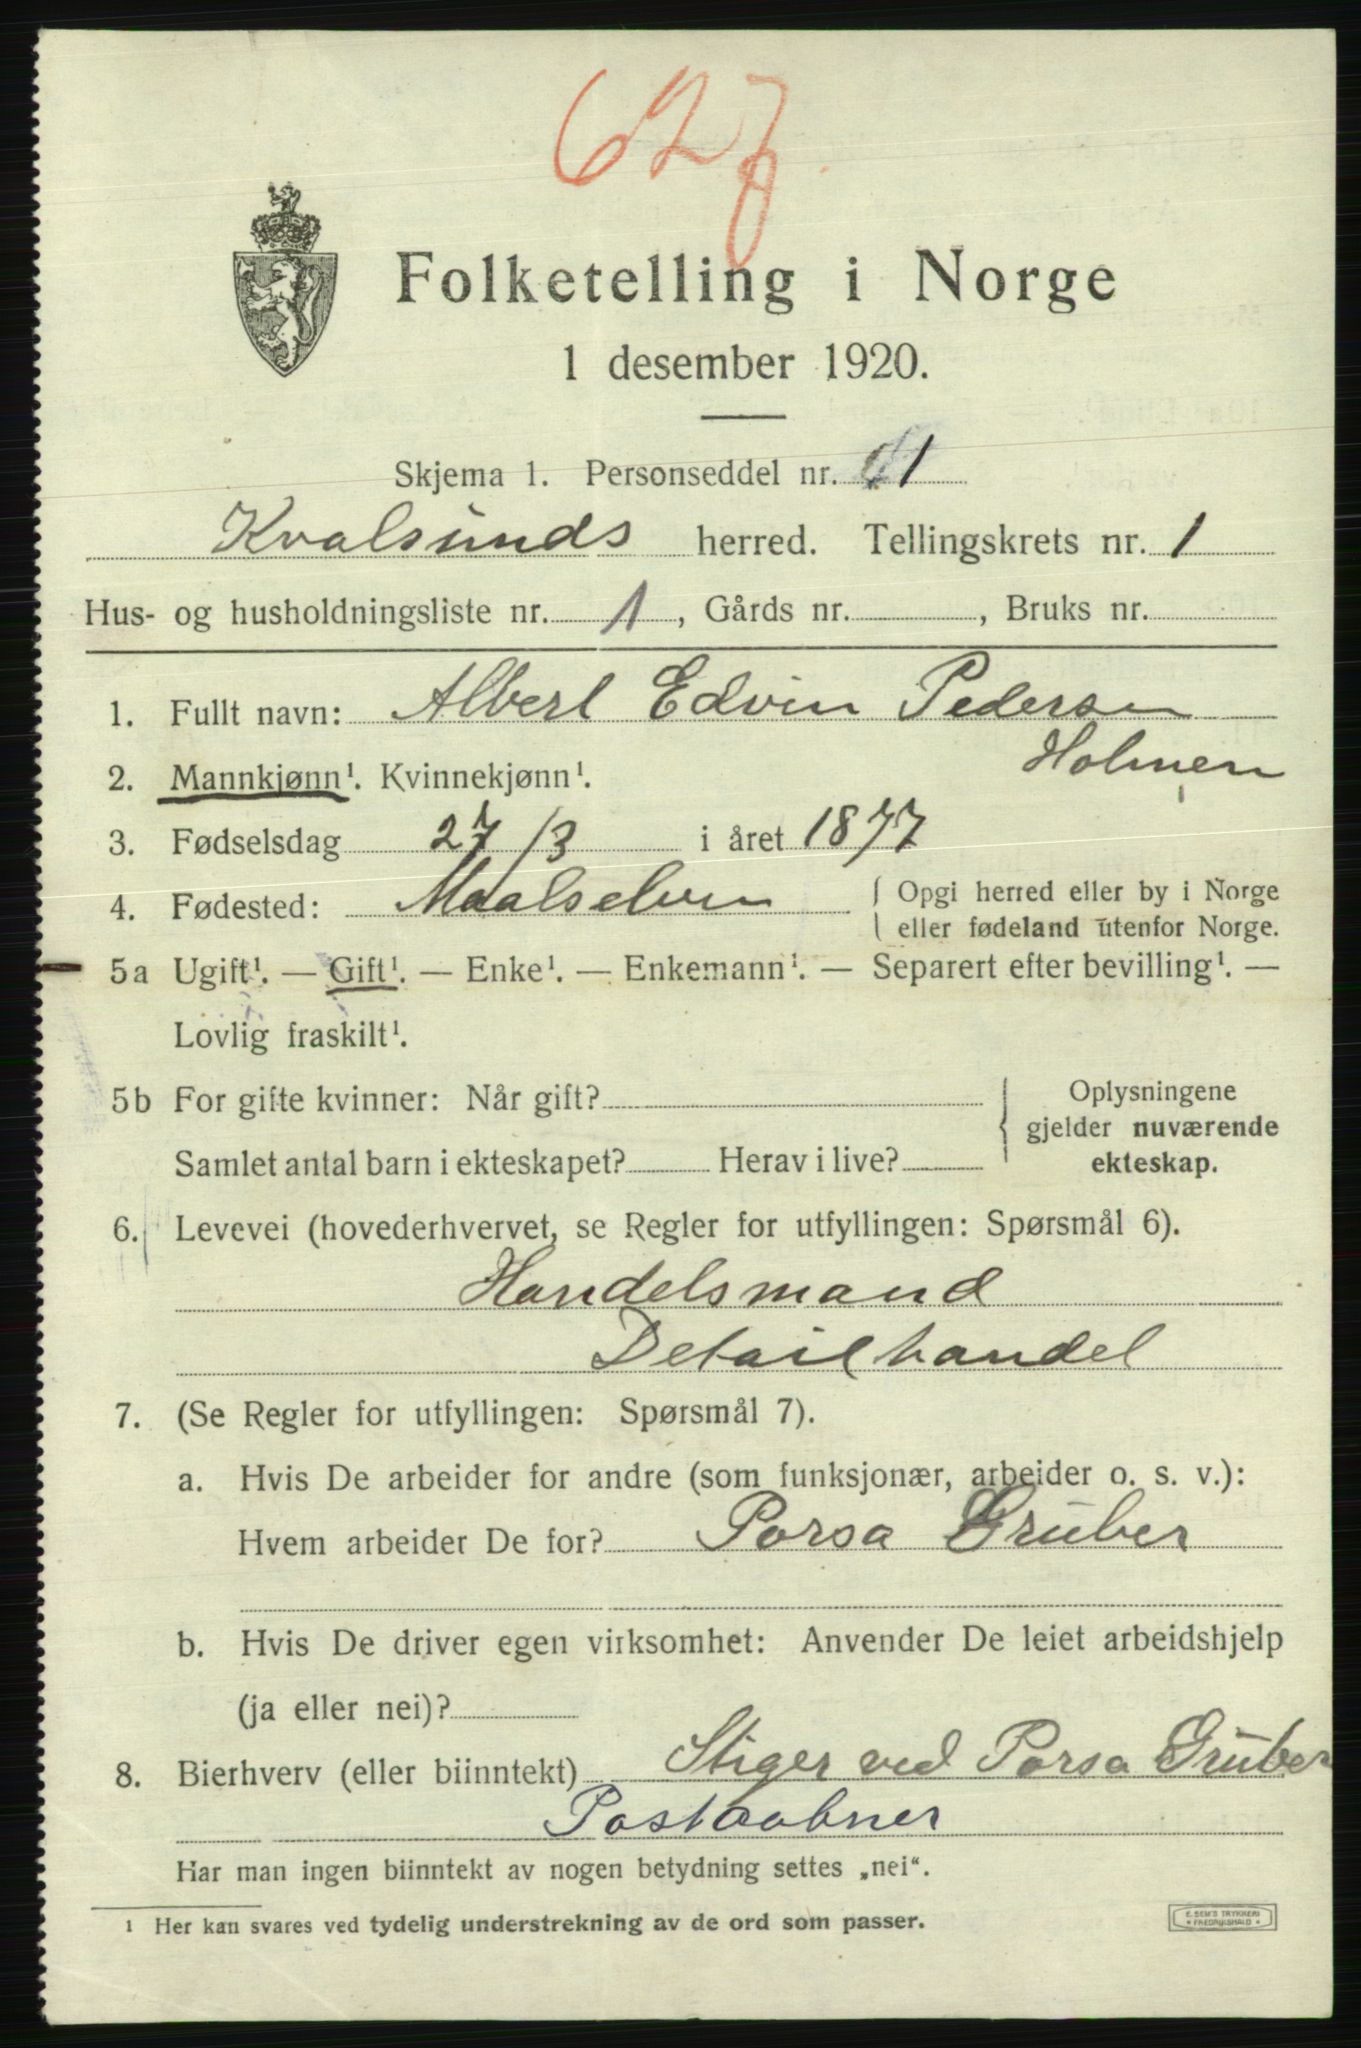 627.
Folketelling i Norge
1 desember 1920.
Skjema 1. Personseddel nr. 1
Kvalsunds herred. Tellingskrets nr. 1
Hus- og husholdningsliste nr. 1, Gårds nr. , Bruks nr.
1. Fullt navn: Albert Edvin Pedersen
Holmen
2. Mannkjønn¹. Kvinnekjønn¹.
3. Fødselsdag 27/3 i året 1877
4. Fødested: Maalselven { Opgi herred eller by i Norge
eller fødeland utenfor Norge.
5a Ugift¹. — Gift¹. — Enke¹. — Enkemann¹. — Separert efter bevilling¹. —
Lovlig fraskilt¹.
5b For gifte kvinner: Når gift?
Samlet antal barn i ekteskapet? Herav i live?
Oplysningene
gjelder nuværende
ekteskap.
6. Levevei (hovederhvervet, se Regler for utfyllingen: Spørsmål 6).
Handelsmand
Detailhandel
7. (Se Regler for utfyllingen: Spørsmål 7).
a. Hvis De arbeider for andre (som funksjonær, arbeider o. s. v.):
Hvem arbeider De for? Porsa Gruber
b. Hvis De driver egen virksomhet: Anvender De leiet arbeidshjelp
(ja eller nei)?
8. Bierhverv (eller biinntekt) Stiger ved Porsa Gruber
Postaabner
Har man ingen biinntekt av nogen betydning settes „nei“.
¹ Her kan svares ved tydelig understrekning av de ord som passer.
E. SEM'S TRYKKERI
FREDRIKSHALD